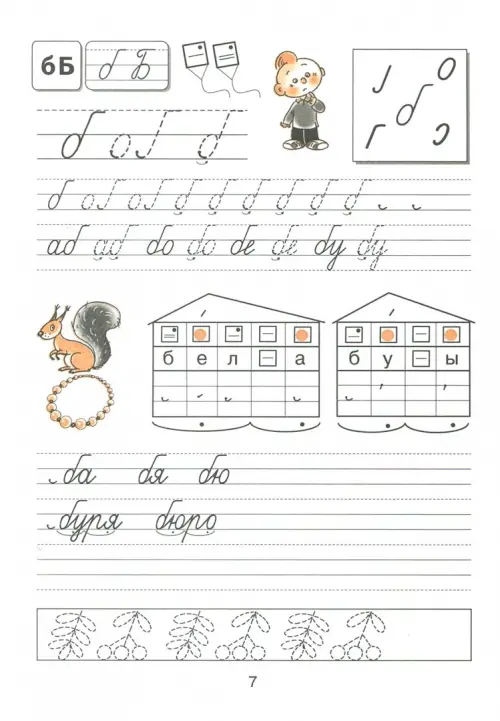 бБ б Б
б
б
б
аб аб бо бо бе бе бу бу
б е л а
б у ы
ба бя бю
буря бюро
7